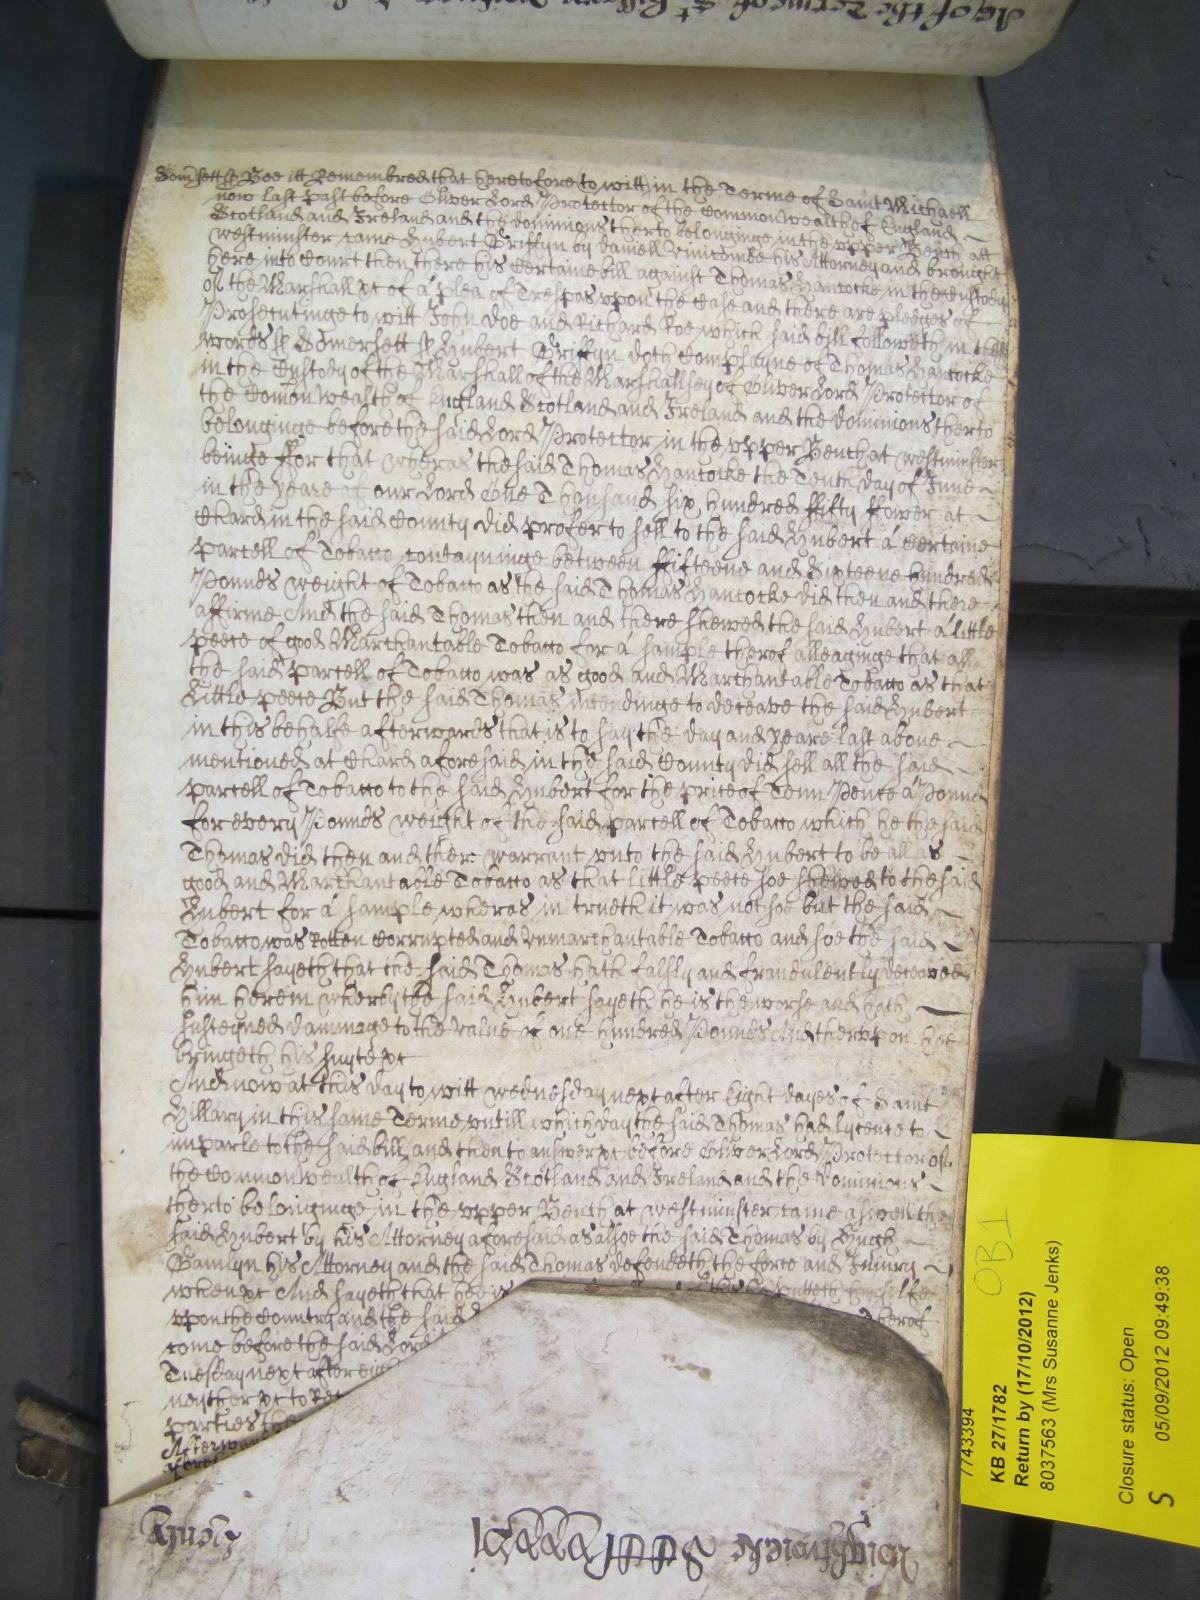 Somsett ss Bee itt Remembred that heretofore to witt in the Terme of Saint Michaell
now last past before Oliver Lord Protector of the Commonwealth of England
Scotland and Ireland and the dominions therto belonginge in the vpper Bench att
westminster came Hubert Griffyn by Daniell Vinicombe his Attorney and brought
here into Court then there his Certaine bill against Thomas Hancocke in the Custody
of the Marshall &c of a plea of Trespas vpon the Case and there are pledges of
Prosecutinge to witt John Doe and Richard Roe which said bill followeth in thes
words ss Somersett ss Hubert Griffyn doth Complayne of Thomas Hancocke
in the Custody of the Marshall of the Marshallsey of Oliver Lord Protector of
the Comon Wealth of England Scotland and Ireland and the dominions therto
belonginge before the said Lord Protector in the vpper Bench at westminster
beinge ffor that wheras the said Thomas Hancocke the Tenth day of June
in the yeare of our Lord One Thousand six hundred ffifty ffower at
Chard in the said County did profer to sell to the said Hubert a Certaine
parcell of Tobacco contayninge between ffifteene and Sixteene hundred
Pounds weight of Tobacco as the said Thomas Hancocke did then and there
affirme And the said Thomas then and there shewed the said Hubert a little
peece of good Marchantable Tobacco for a sample therof alleaginge that all
the said parcell of Tobacco was as good and Marchantable Tobacco as that
Little peece But the said Thomas intendinge to deceave the said Hubert
in this behalfe afterwards that is to say the day and yeare last above
mentioned at Chard aforesaid in the said County did sell all the said
parcell of Tobacco to the said Hubert for the price of Tenn Pence a Pound
for every Pounds weight of the said parcell of Tobacco which he the said
Thomas did then and there warrant vnto the said Hubert to be all as
good and Marchantable Tobacco as that little peece soe shewed to the said
Hubert for a sample wheras in trueth it was not soe but the said
Tobacco was Rotten Corrupted and Vnmarchantable Tobacco and soe the said
Hubert sayeth that the said Thomas hath falsly and fraudulently deceaved
him herein wherby the said Hubert sayeth he is the worse and hath
susteyned dammage to the value of one hundred Pounds And thervpon hee
bringeth his suyte &c
And now at this day to witt wednesday next after Eight dayes of Saint
Hillary in this same Terme vntill which day the said Thomas had lycence to
imparle to the said bill and then to answer &c before Oliver Lord Protector of
the Commonwealth of England Scotland and Ireland and the dominions
therto belonginge in the vpper Bench at westminster came aswell the
said Hubert by his Attorney aforesaid as alsoe the said Thomas by Hugh
his Attorney and the said Thomas defendeth the force and Iniury
when &c And sayeth that hee is putteth himselfe
vpon the Country and the said therof
come before the said Lord
Tuesday next after eight
neyther &c to Rec
parties the
Afterwards
7743394
KB 27/1782
OB1
Return by (17/10/2012)
8037563 (Mrs Susanne Jenks)
Closure status: Open
05/09/2012 09:49:38
S